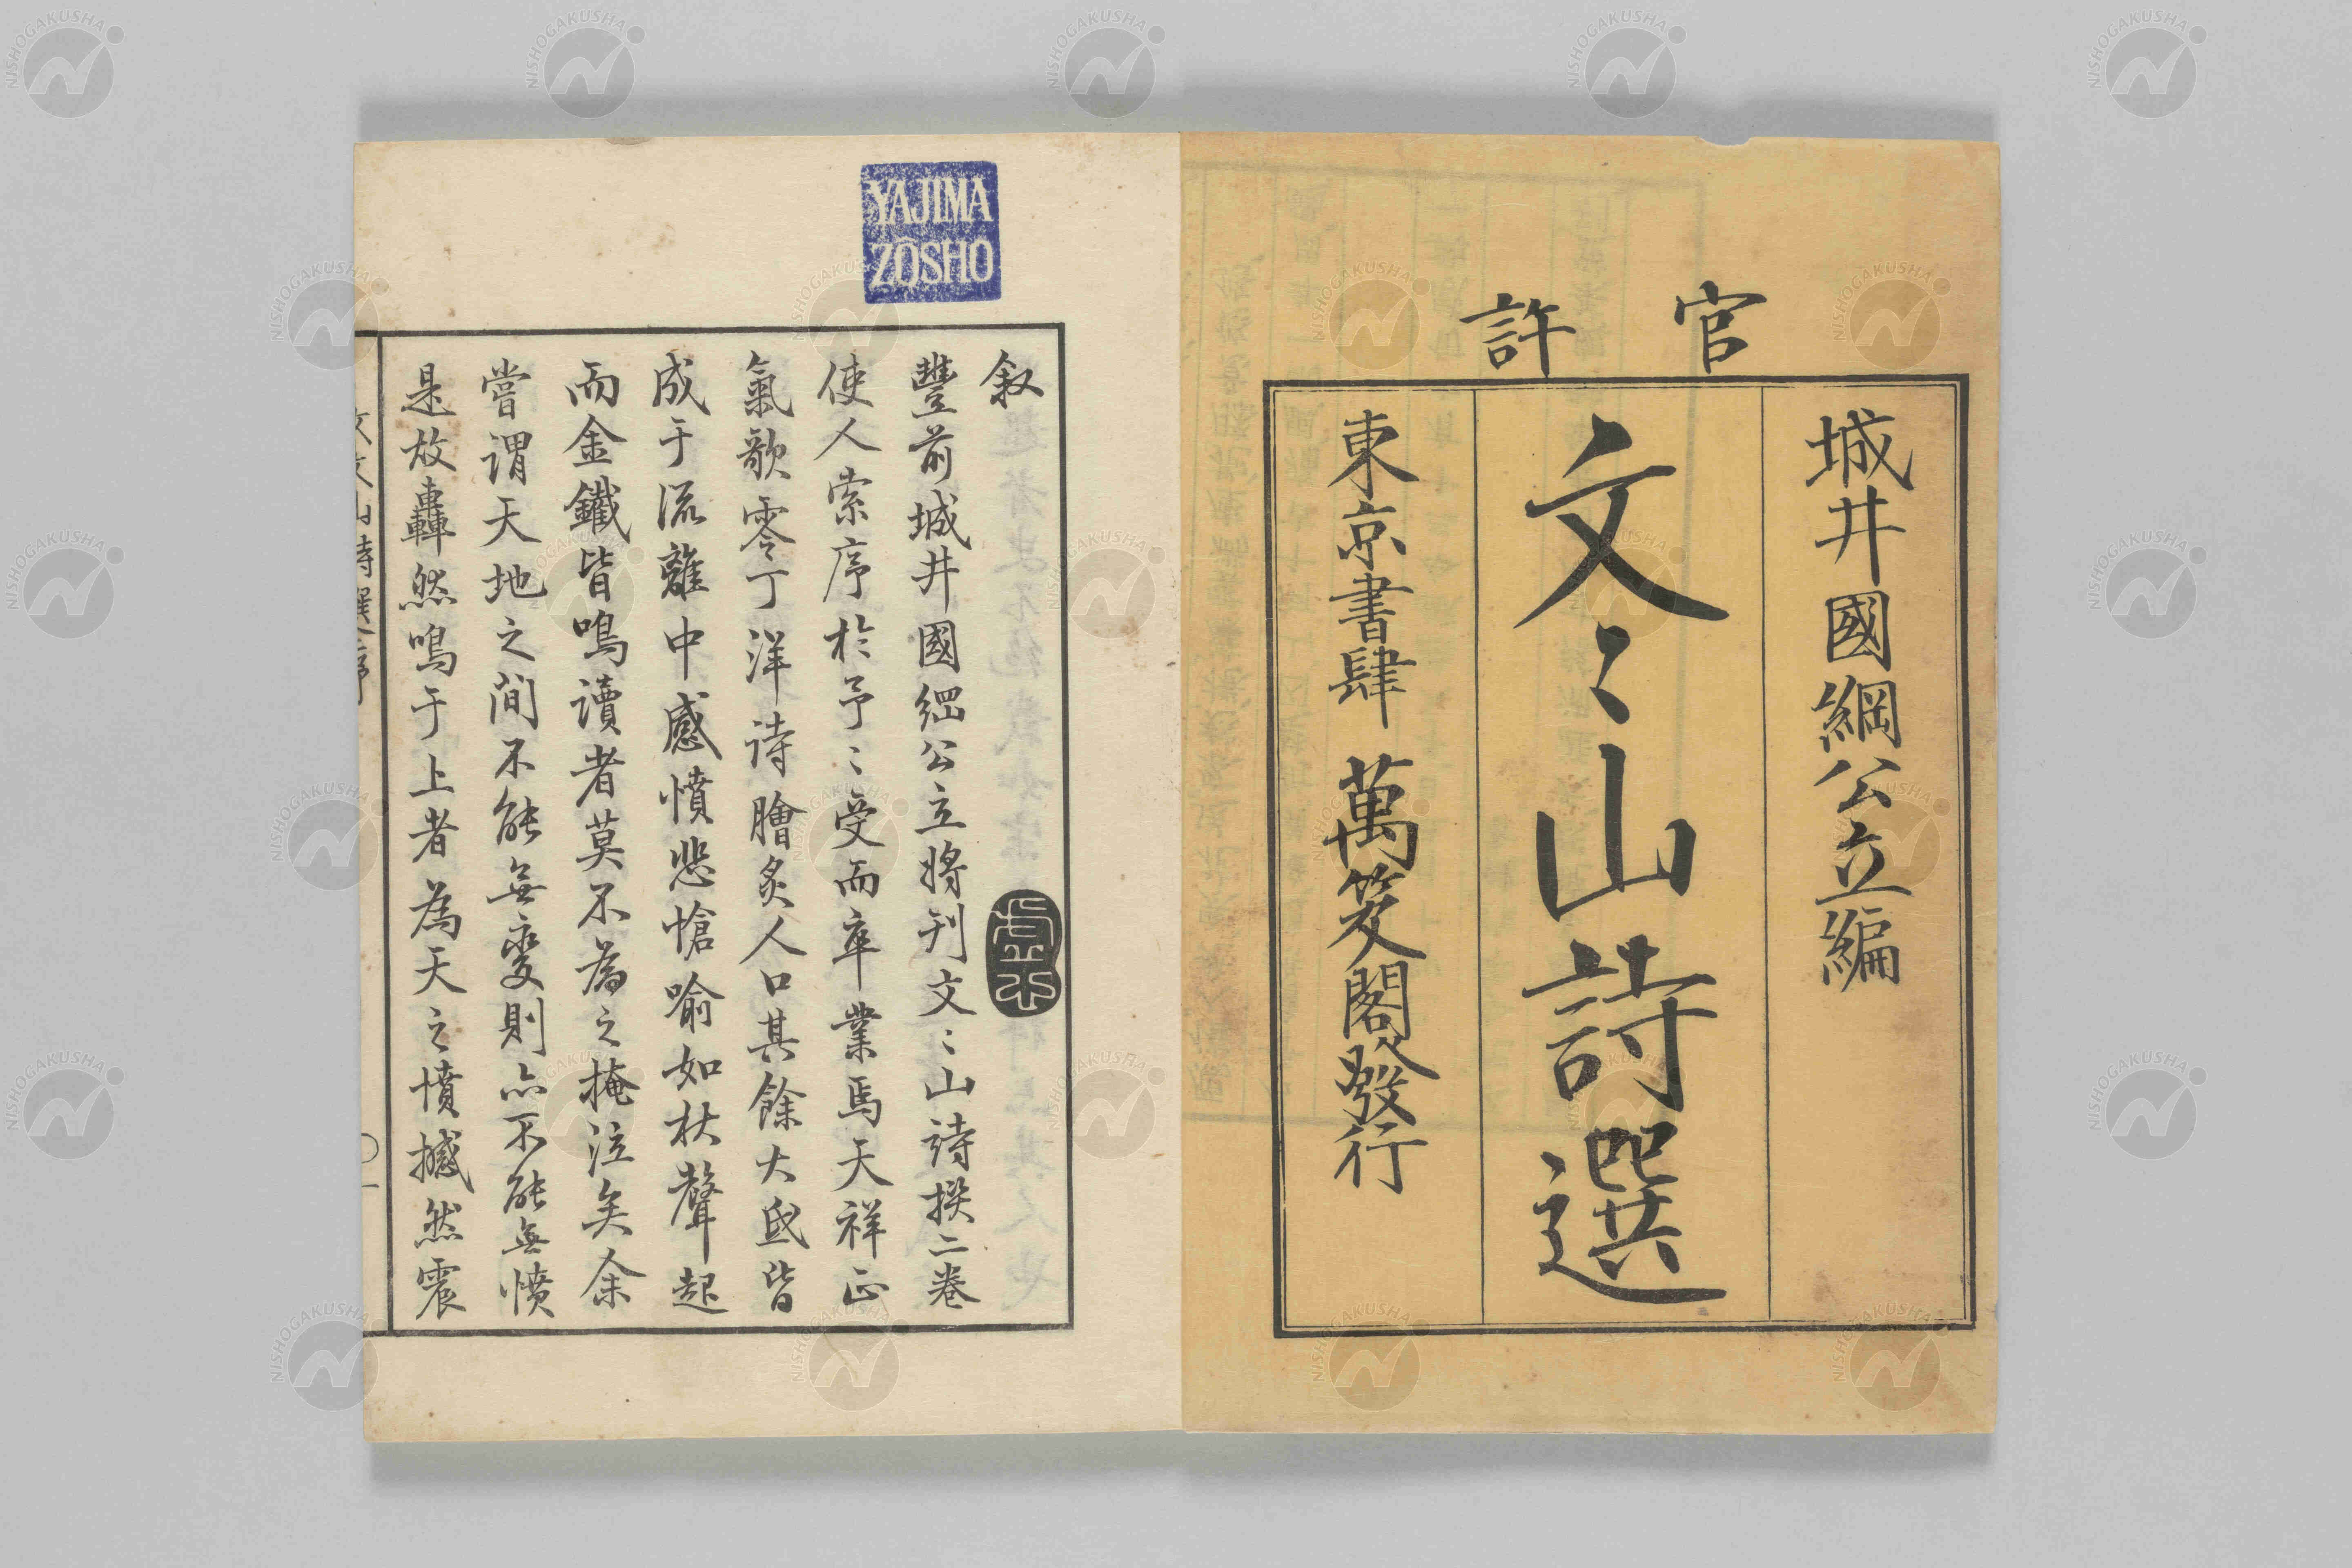 官許
城井國綱公立編
文〻山詩選
東京書肆 萬笈閣發行
YAJIMA
ZŌSHO
叙
豐前城井國綱公立將刊文〻山詩撰二卷
使人索序於予〻受而卒業焉天祥正
氣歌零丁洋詩膾炙人口其餘大氐皆
成于流離中感憤悲愴喻如杖聲起
而金鐵皆鳴讀者莫不爲之掩泣矣余
嘗謂天地之間不能無變則亦不能無憤
是故轟然鳴于上者為天之憤撼然震
NISHOGAKUSHA